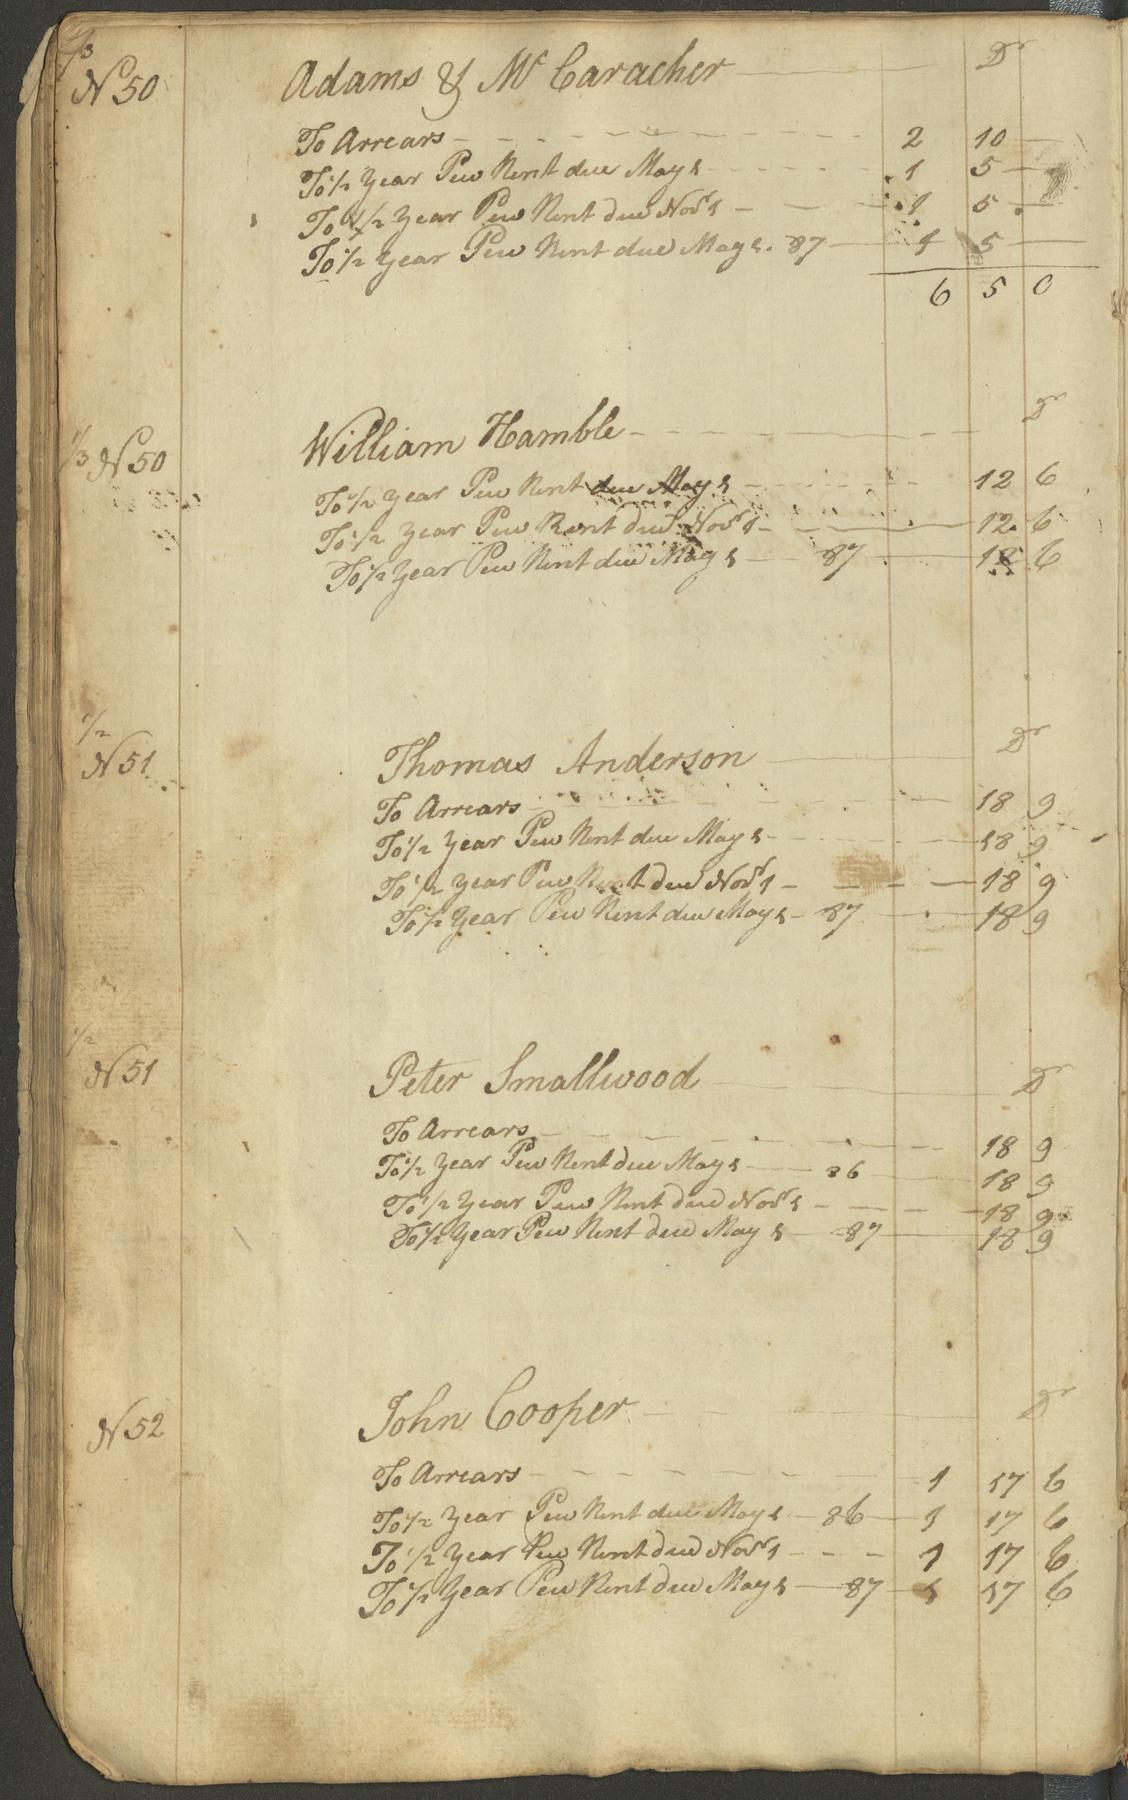 2/3
N 50 Adams & Mc Caracher Dr
To Arrears 2 10
To 1/2 Year Pew Rent due May 1 1 5
To 1/2 Year Pew Rent due Novr 1 1 5
To 1/2 Year Pew Rent due May 1. 87 1 5
6 5 0
1/3 N 50 William Hamble Dr
To 1/2 Year Pew Rent due May 1 12 6
To 1/2 Year Pew Rent due Novr 1 12 6
To 1/2 Year Pew Rent due May 1 87 12 6
1/2
N 51 Thomas Anderson Dr
To Arrears 18 9
To 1/2 Year Pew Rent due May 1 18 9
To 1/2 Year Pew Rent due Novr 1 18 9
To 1/2 Year Pew Rent due May 1 87 18 9
1/2
N 51 Peter Smallwood Dr
To Arrears 18 9
To 1/2 Year Pew Rent due May 1 86 18 9
To 1/2 Year Pew Rent due Novr 1 18 9
To 1/2 Year Pew Rent due May 1 87 18 9
N 52 John Cooper Dr
To Arrears 1 17 6
To 1/2 Year Pew Rent due May 1 86 1 17 6
To 1/2 Year Pew Rent due Novr 1 1 17 6
To 1/2 Year Pew Rent due May 1 87 1 17 6